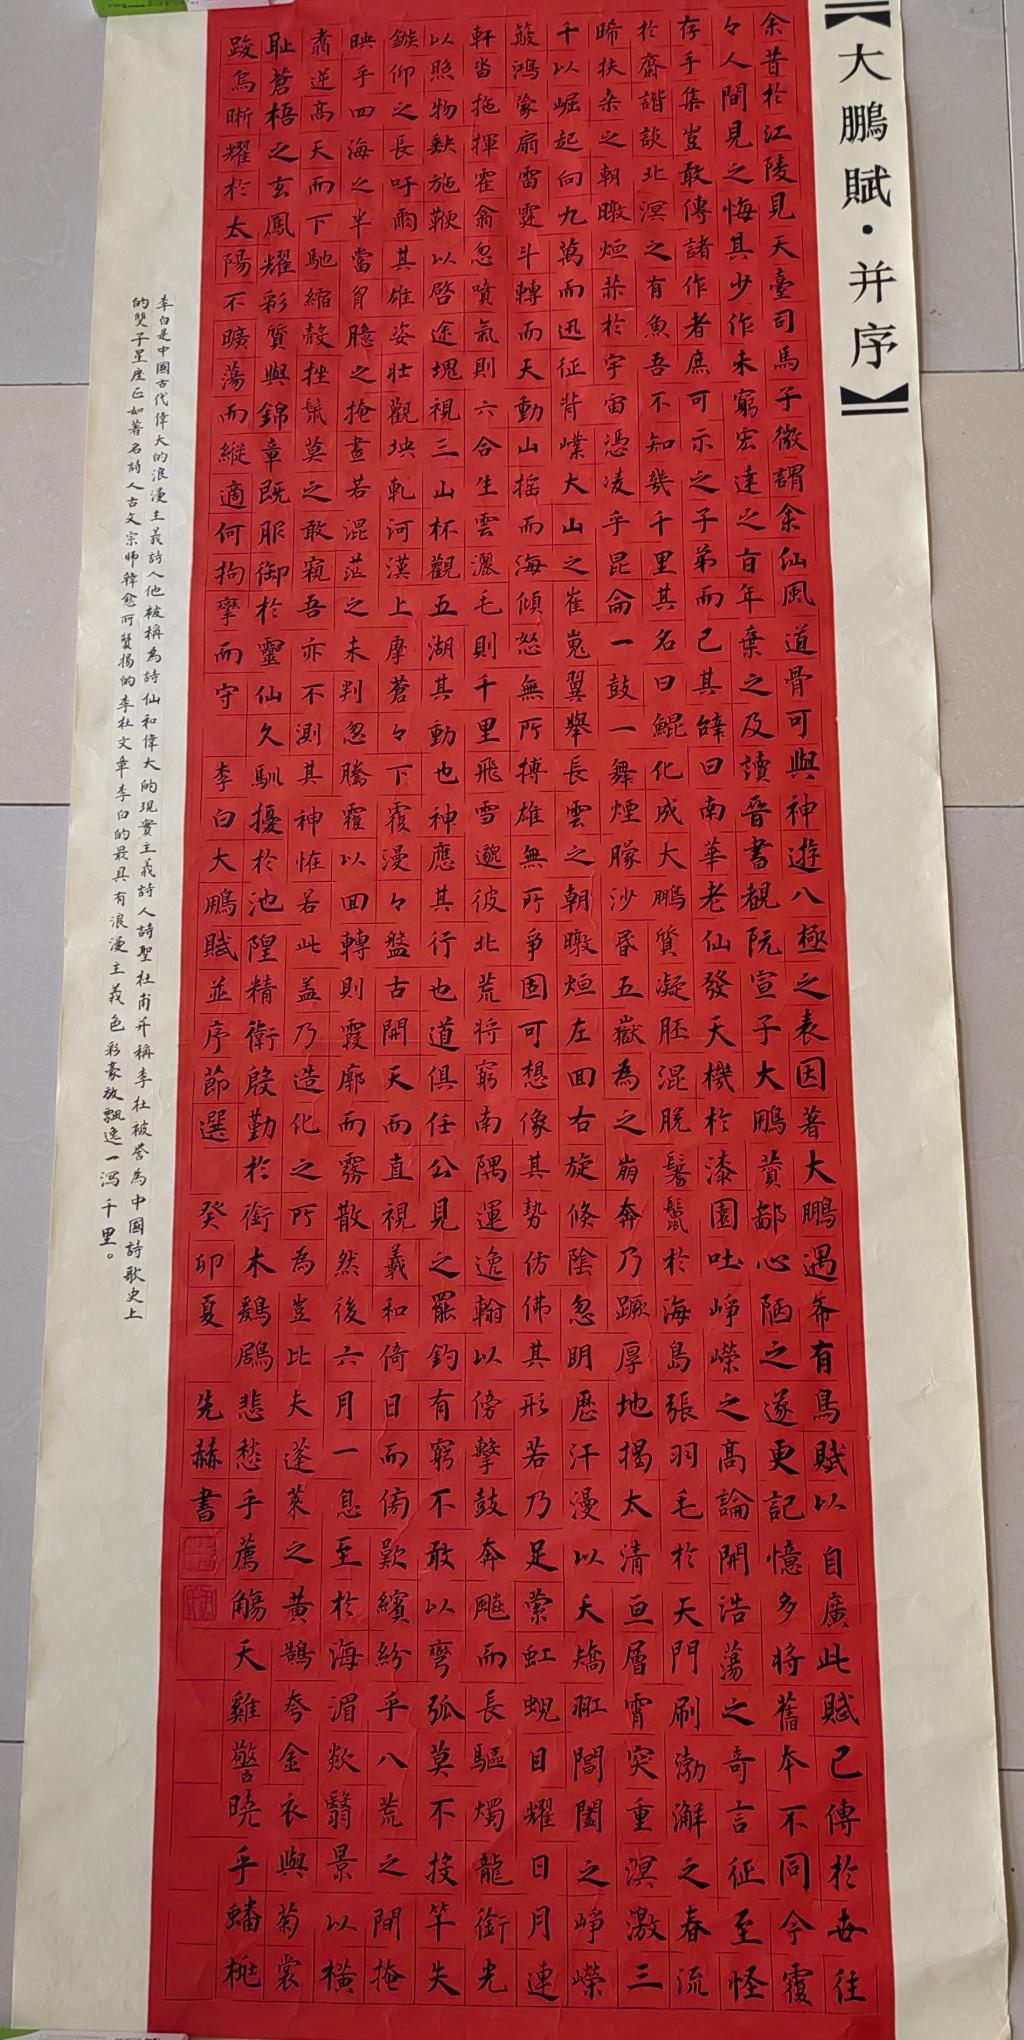 【大鵬賦·并序】
余昔於江陵見天臺司馬子微謂余仙風道骨可與神遊八極之表因著大鵬遇希有鳥賦以自廣此賦已傳於世往
々人間見之悔其少作未窮宏達之旨年棄之及讀晉書覩阮宣子大鵬贊鄙心陋之遂更記憶多將舊本不同今覆
存手集豈敢傳諸作者庶可示之子弟而已其辭曰南華老仙發天機於漆園吐崢嶸之高論開浩蕩之奇言征至怪
於齊諧談北溟之有魚吾不知幾千里其名曰鯤化成大鵬質凝胚混脫鬐鬣於海島張羽毛於天門刷渤澥之春流
晞扶桑之朝暾烜赫於宇宙憑凌乎昆侖一鼓一舞煙朦沙昏五嶽為之崩奔乃蹶厚地揭太清亘層霄突重溟激三
千以崛起向九萬而迅征背嶪大山之崔嵬翼舉長雲之朝暾烜左回右旋倏陰忽明歷汗漫以夭矯羾閶闔之崢嶸
簸鴻蒙扇雷霆斗轉而天動山搖而海傾怒無所搏雄無所爭固可想像其勢仿佛其形若乃足縈虹蜺目耀日月連
軒沓拖揮霍翕忽噴氣則六合生雲灑毛則千里飛雪邈彼北荒將窮南隅運逸翰以傍擊鼓奔飆而長驅燭龍銜光
以照物缺施鞭以啓途塊視三山杯觀五湖其動也神應其行也道俱任公見之罷釣有窮不敢以彎弧莫不投竿失
鏃仰之長吁爾其雄姿壯觀坱軋河漢上摩蒼々下覆漫々盤古開天而直視羲和倚日而傍歎繽紛乎八荒之間掩
映乎四海之半當胷臆之掩晝若混茫之未判忽騰覆以回轉則霞廓而霧散然後六月一息至於海湄欻翳景以橫
翥逆高天而下馳縮殼挫鬣莫之敢窺吾亦不測其神怪若此蓋乃造化之所為豈比夫蓬萊之黃鵠夸金衣與菊裳
恥蒼梧之玄鳳耀彩質與錦章既服御於靈仙久馴擾於池隍精衛殷勤於銜木鶢鶋悲愁乎薦觴天雞警曉乎蟠桃
踆烏晰耀於太陽不曠蕩而縱適何拘攣而守 李白大鵬賦並序節選 癸卯夏 先赫書
李白是中國古代偉大的浪漫主義詩人他被稱為詩仙和偉大的現實主義詩人詩聖杜甫并稱李杜被譽為中國詩歌史上
的雙子星座正如著名詩人古文宗師韓愈所贊揚的李杜文章李白的最具有浪漫主義色彩豪放飄逸一瀉千里。